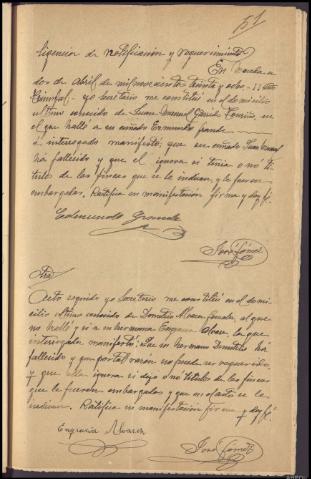 51
ligencia de Notificación y requerimiento
En
a dos de Abril de mil novecientos treinta y ocho - II año
Triunfal - yo Secretario me constituí en el domicilio
último conocido de Juan Manuel García, en
el que hallé a su cuñado Edmundo Grande
é interrogado manifestó; que su cuñado Juan Manuel
há fallecido y que el ignora si tenia o no tí-
tulos de las fincas que se le indican, y le fueron
embargadas. Ratifica su manifestación firma y doy fé.
Edmundo Grande
José Gómez
Otra
Acto seguido yo Secretario me constituí en el do mi-
cilio último conocido de Demetrio Alvarez, al que
no hallé y sí a su hermana Engracia Alvarez, la que
interrogada manifestó: Que su hermano Demetrio há
fallecido y que por tal razón no puede ser requerido,
y que ella ignora si dejó o no títulos de las fincas
que le fueron embargadas y que en el acto se le
indican. Ratifica su manifestación firma y doy fé
Engracia Alvarez
José Gómez